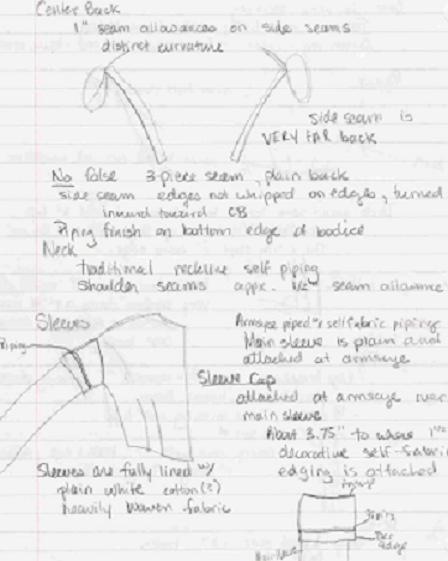 Center Back
1" seam allowances on side seams
distinct curvature
side seam is
VERY FAR back
No false 3-piece seam, plain back
side seam edges not whipped on edges, turned
inward toward CB
Piping finish on bottom edge of bodice
Neck
traditional neckline self piping
shoulder seams appx. 1/2" seam allowance
Sleeves
Piping
Armscye piped w/ self fabric piping
Main sleeve is plain and
attached at armscye
Sleeve Cap
attached at armscye over
main sleeve
About 3.75" to where 1 1/2"
decorative self-fabric
edging is attached
Sleeves are fully lined w/
plain white cotton(?)
heavily woven fabric
piping
edge